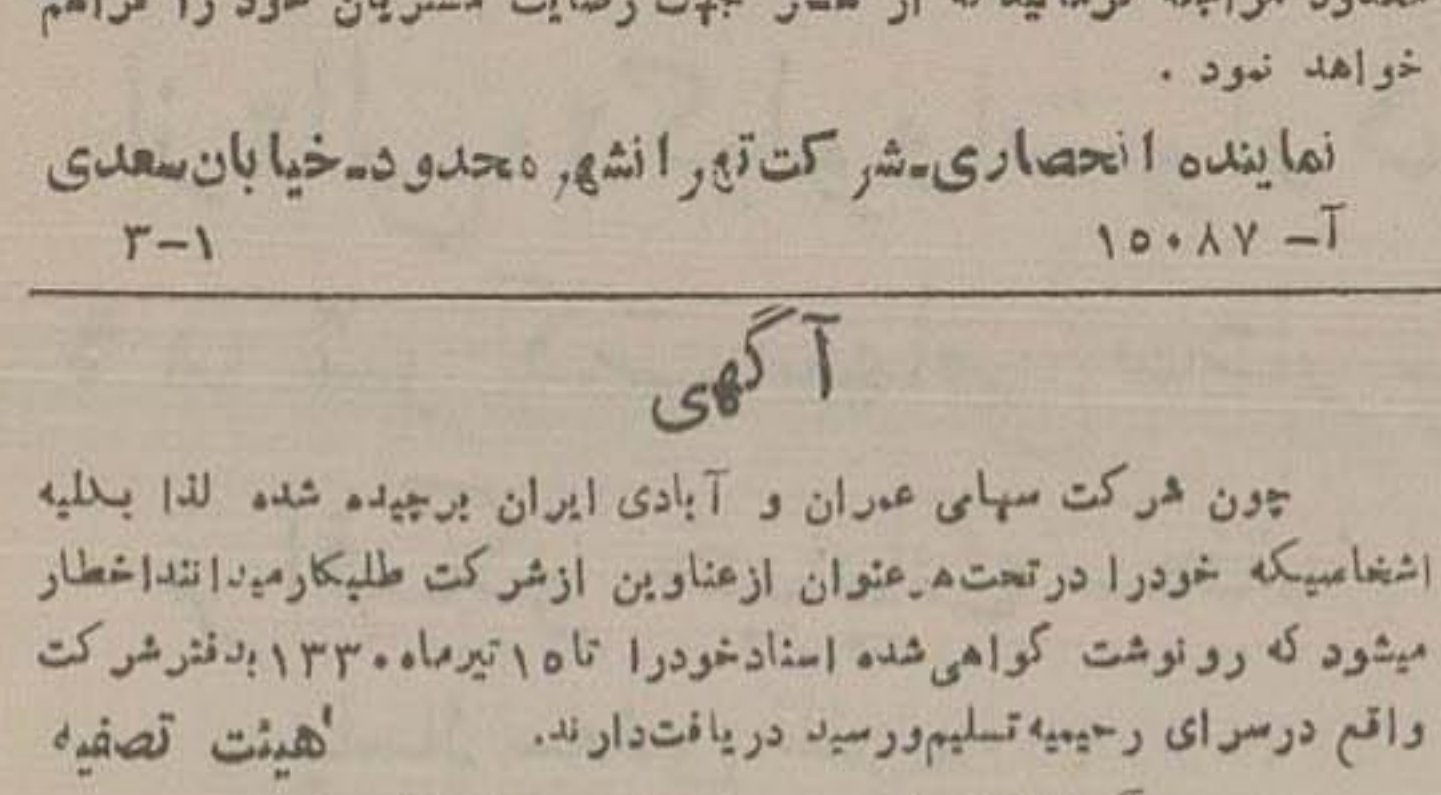 مراجعه فرمائید که از هر جهت رضایت مشتریان خود را فراهم
خواهد نمود .
نماینده انحصاری-شرکت تهرانشهر محدود-خیابان سعدی
آ- ۱۵۰۸۷
۳-۱
آگهی
چون شرکت سهامی عمران و آبادی ایران برچیده شده لذا بکلیه
اشخاصیکه خودرا در تحت هر عنوان از عناوین از شرکت طلبکار میدانند اخطار
میشود که رونوشت گواهی شده اسناد خودرا تا ۱۵ تیرماه ۱۳۳۰ بدفتر شرکت
واقع در سرای رحیمیه تسلیم و رسید دریافت دارند. هیئت تصفیه